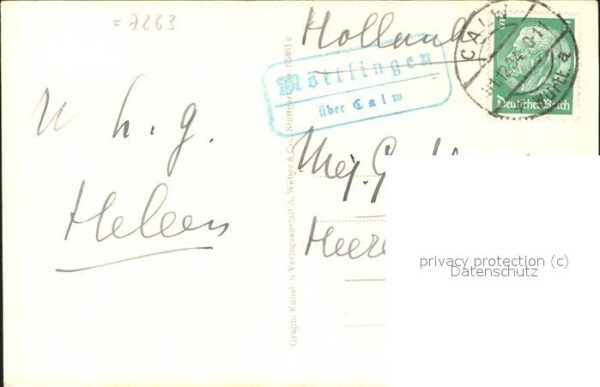 = 7263
Holland
Möttlingen
über Calw
CALW
Württ.
Deutsches Reich
Mej.
Heere
Heleen
Graph. Kunst- u. Verlagsanstalt A. Weber & Co., Stuttgart
privacy protection (c)
Datenschutz